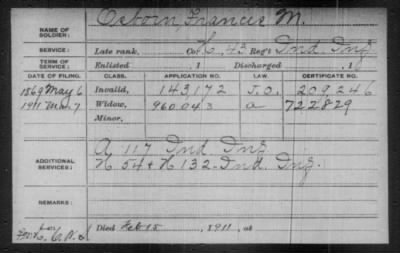 NAME OF SOLDIER: Osborn, Francis M.
SERVICE: Late rank, Co. K, 43 Reg't Ind Inf
TERM OF SERVICE: Enlisted , 1 Discharged , 1
DATE OF FILING. CLASS. APPLICATION NO. LAW. CERTIFICATE NO.
1869 May 6 Invalid, 143172 J.O. 209,246
1911 Mar 7 Widow, 960043 a 722829
Minor,
ADDITIONAL SERVICES: A 117 Ind Inf
K 54 & K 132 Ind. Inf.
REMARKS:
Died Feb 15, 1911, at